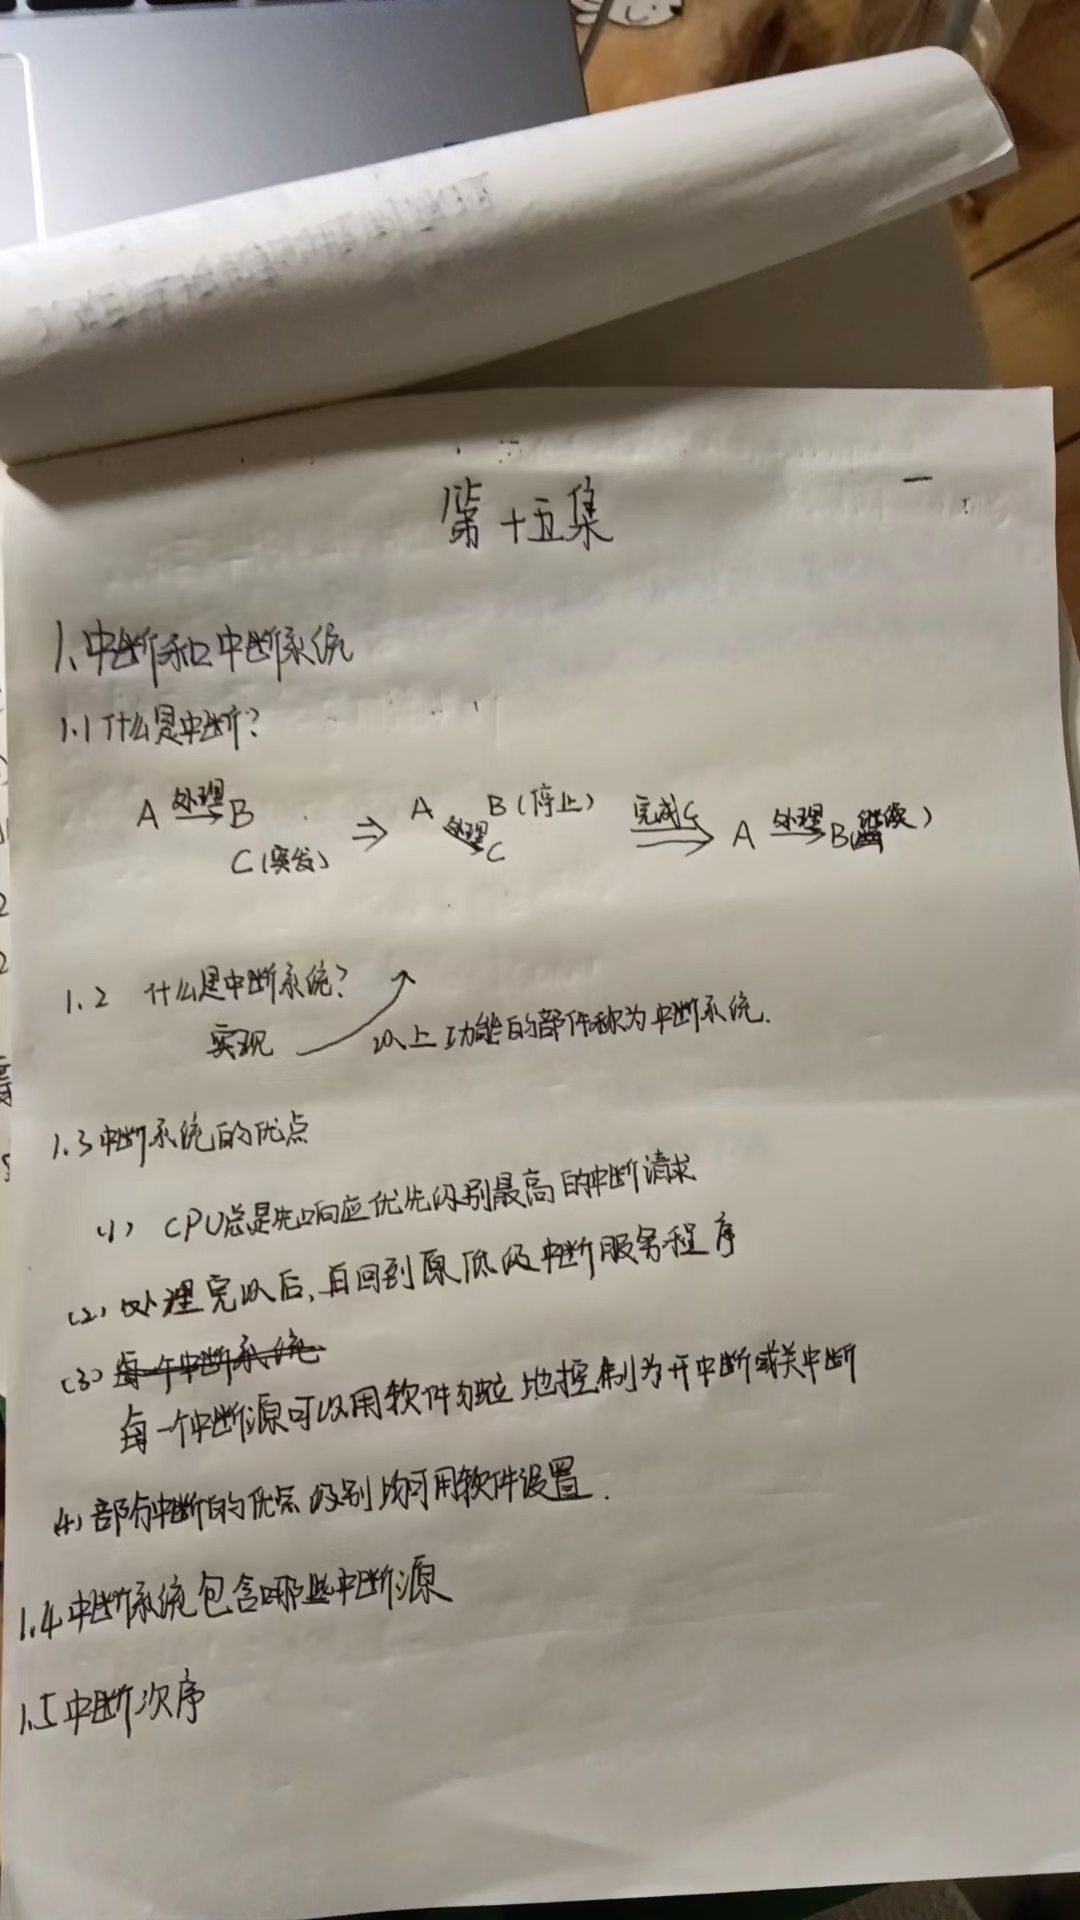 第十五集
1、中断和中断系统
1.1 什么是中断?
A 处理 B
C(突发)
⇒ A 处理 C B(停止)
完成C A 处理 B(继续)
1.2 什么是中断系统?
实现 以上功能的部件称为中断系统.
1.3 中断系统的优点
(1) CPU总是先响应优先级别最高的中断请求
(2) 处理完以后,再回到原低级中断服务程序
(3) 每一个中断系统
每一个中断源可以用软件独立地控制为开中断或关中断
(4) 部分中断的优点级别均可用软件设置.
1.4 中断系统包含哪些中断源
1.5 中断次序